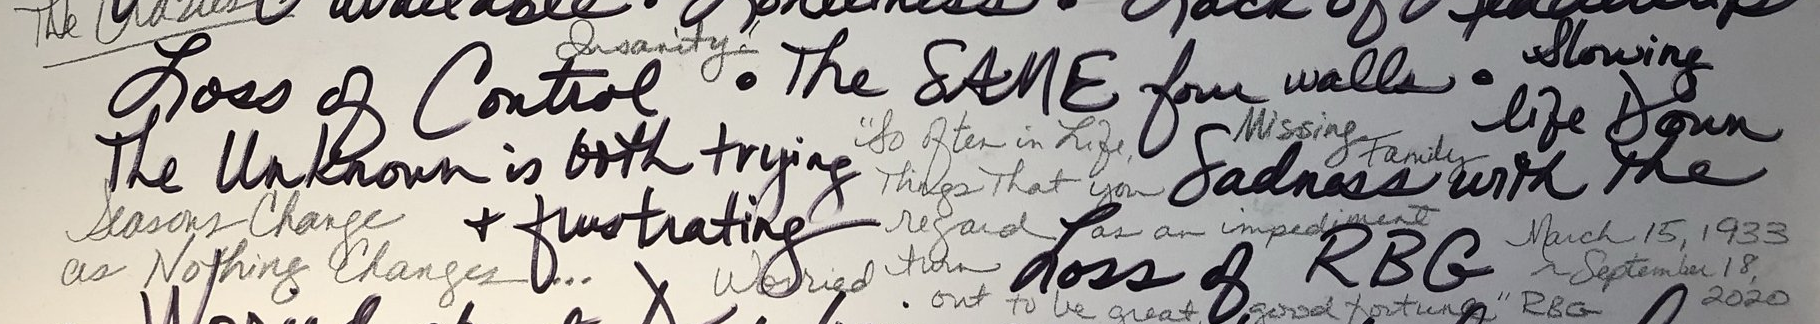 The Crazies available • Loneliness • Lack of Leadership
Insanity"
Loss of Control • The SAME four walls • Slowing
life Down
The Unknown is both trying
+ frustrating
"So often in Life,
Things That you
regard as an impediment
turn
out to be great, good fortune" RBG
Missing Family
Sadness with the
Loss of RBG
March 15, 1933
~ September 18,
2020
Seasons Change
as Nothing Changes...
Worried